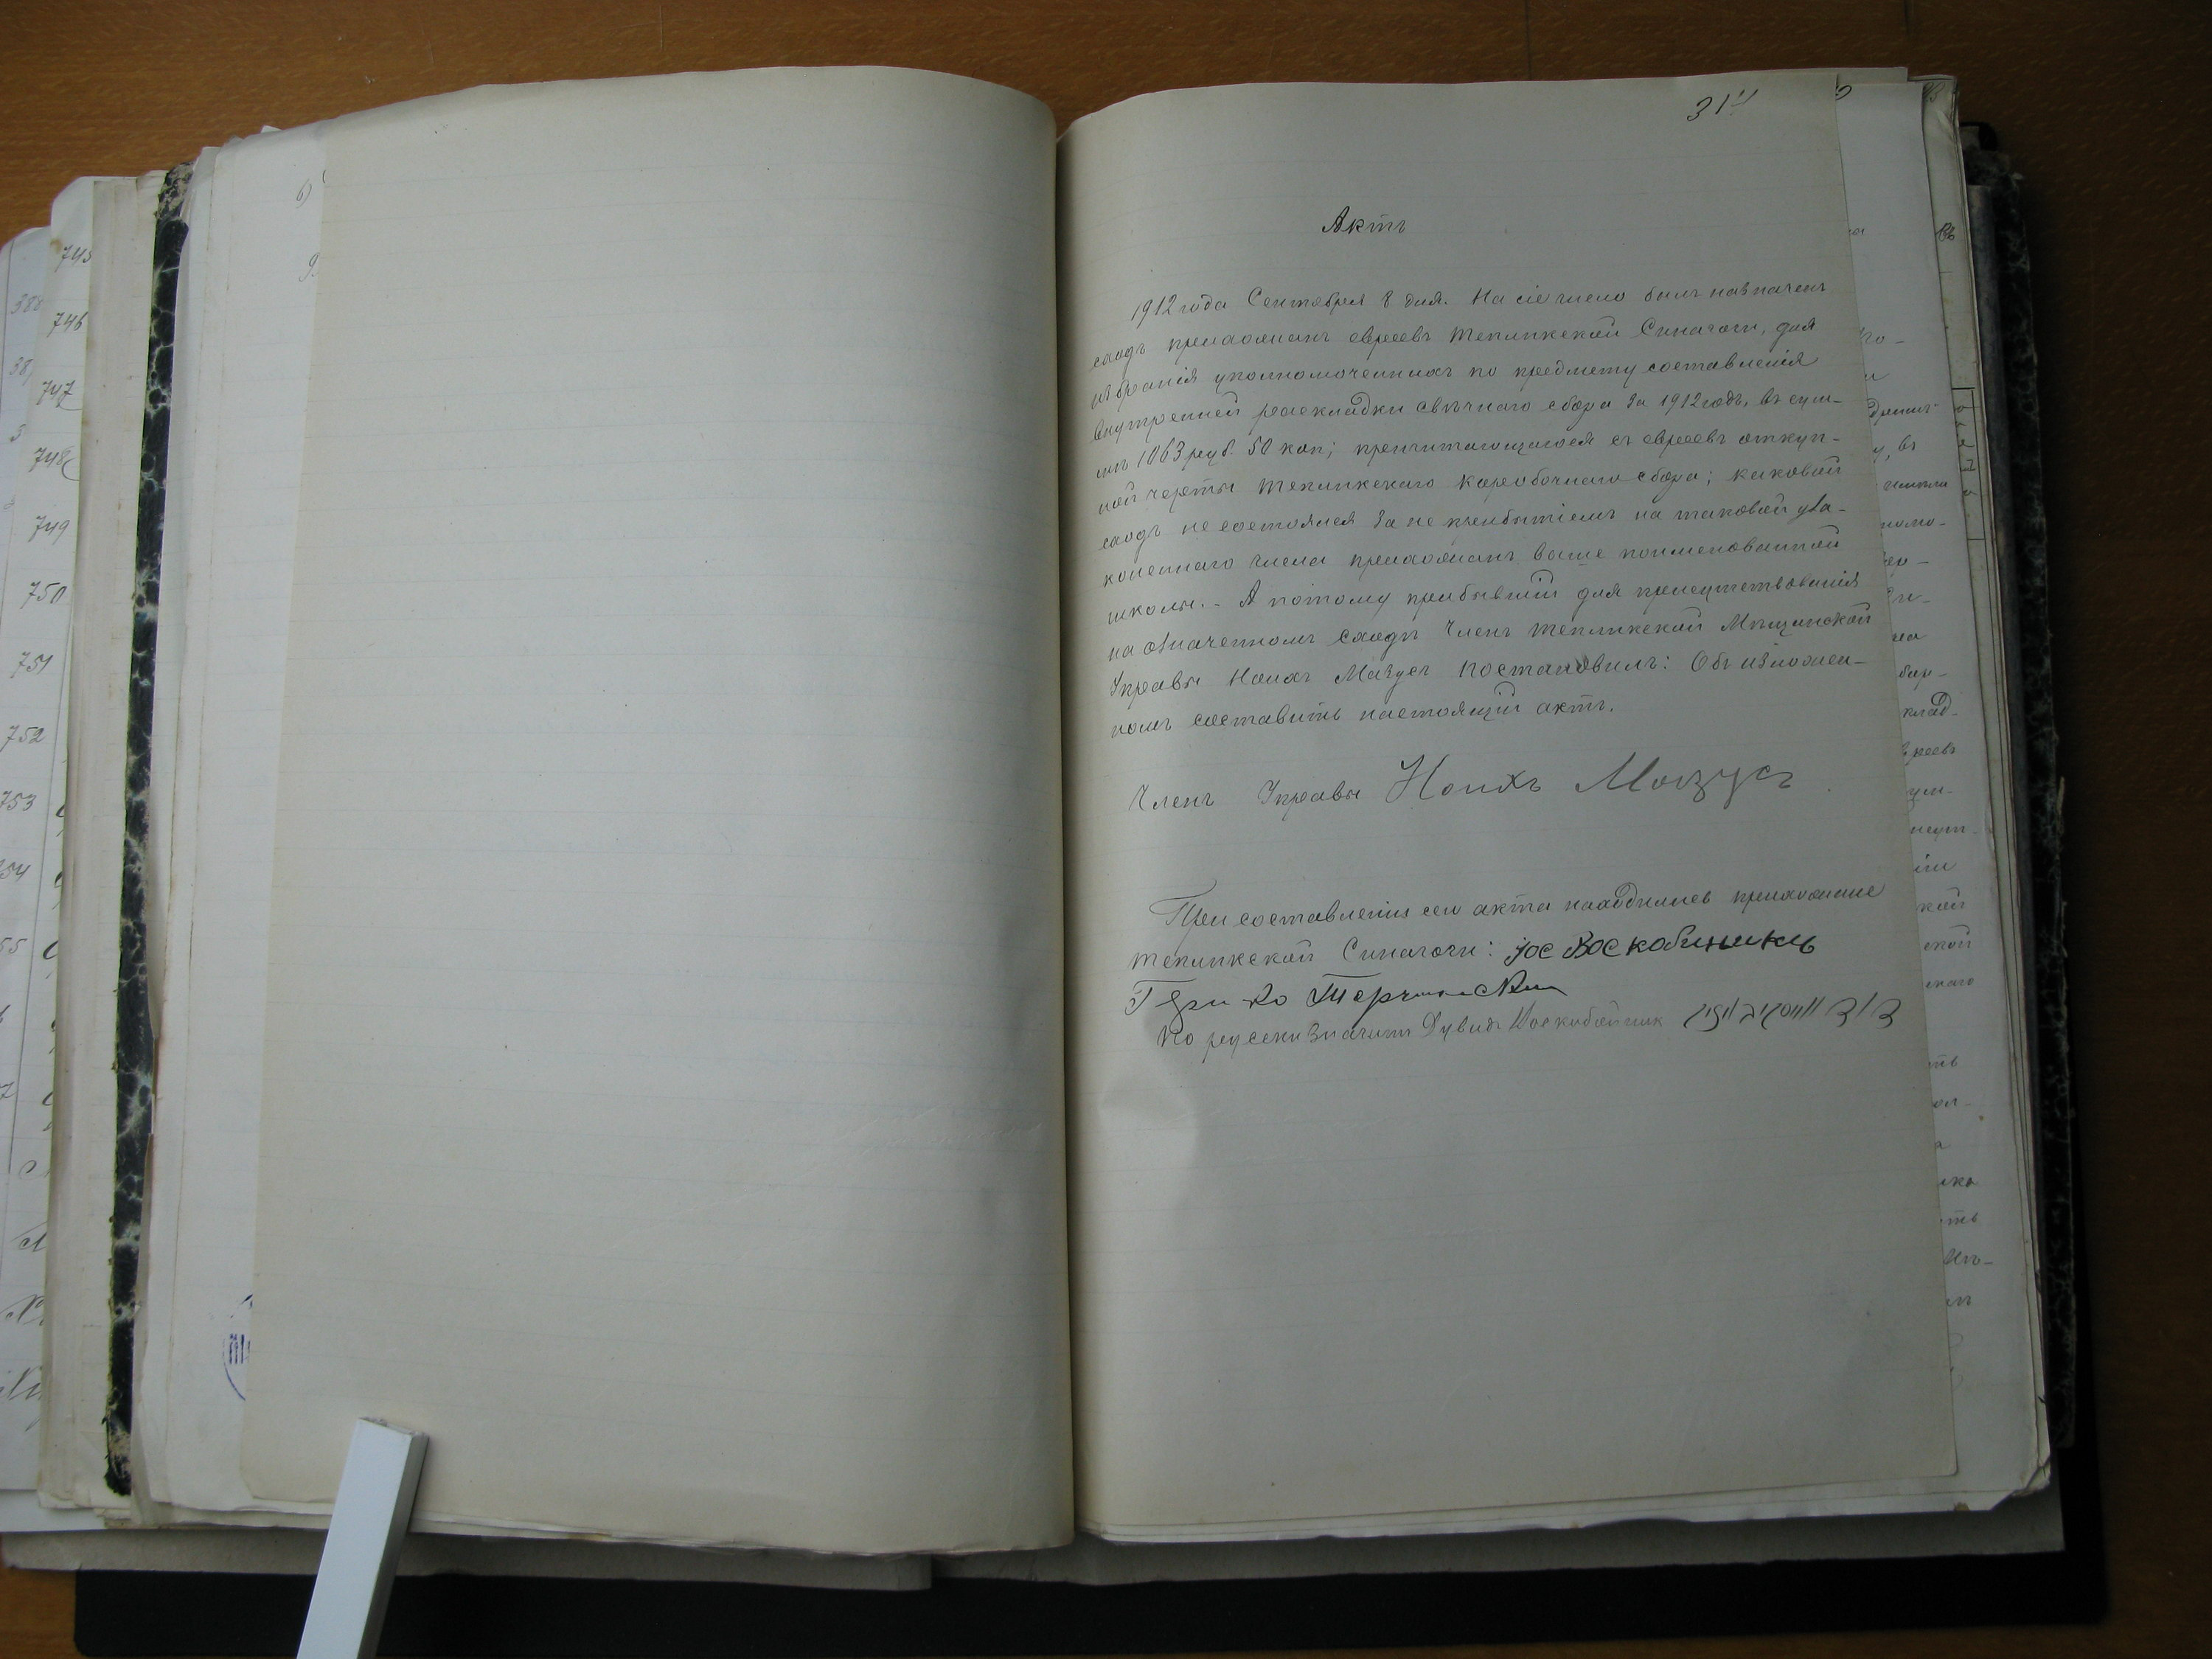 314
Актъ
1912 года Сентября 8 дня. На сіе число былъ назначенъ
сходъ прихожанъ евреевъ Тепликской Синагоги, для
избранія уполномоченныхъ по предмету составленія
внутренней раскладки свѣчнаго сбора за 1912 годъ, въ сум-
мѣ 1063 руб. 50 коп; причитающагося съ евреевъ откуп-
ной черты Тепликскаго коробочнаго сбора; каковой
сходъ не состоялся за не прибытіемъ на таковой уза-
коненнаго числа прихожанъ выше поименованной
школы. - А потому прибывшій для присутствованія
на означенномъ сходѣ Членъ Тепликской Мѣщанской
Управы Нонхъ Мазусъ постановилъ: Объ изложен-
номъ составить настоящій актъ.
Членъ Управы Нонхъ Мазусъ
При составленіи сего акта находились прихожане
Тепликской Синагоги: Іос Воскобиникъ
По русски значитъ Дувидъ Воскобойник דוד וואסקאבאיניק
745
746
747
748
749
750
751
752
753